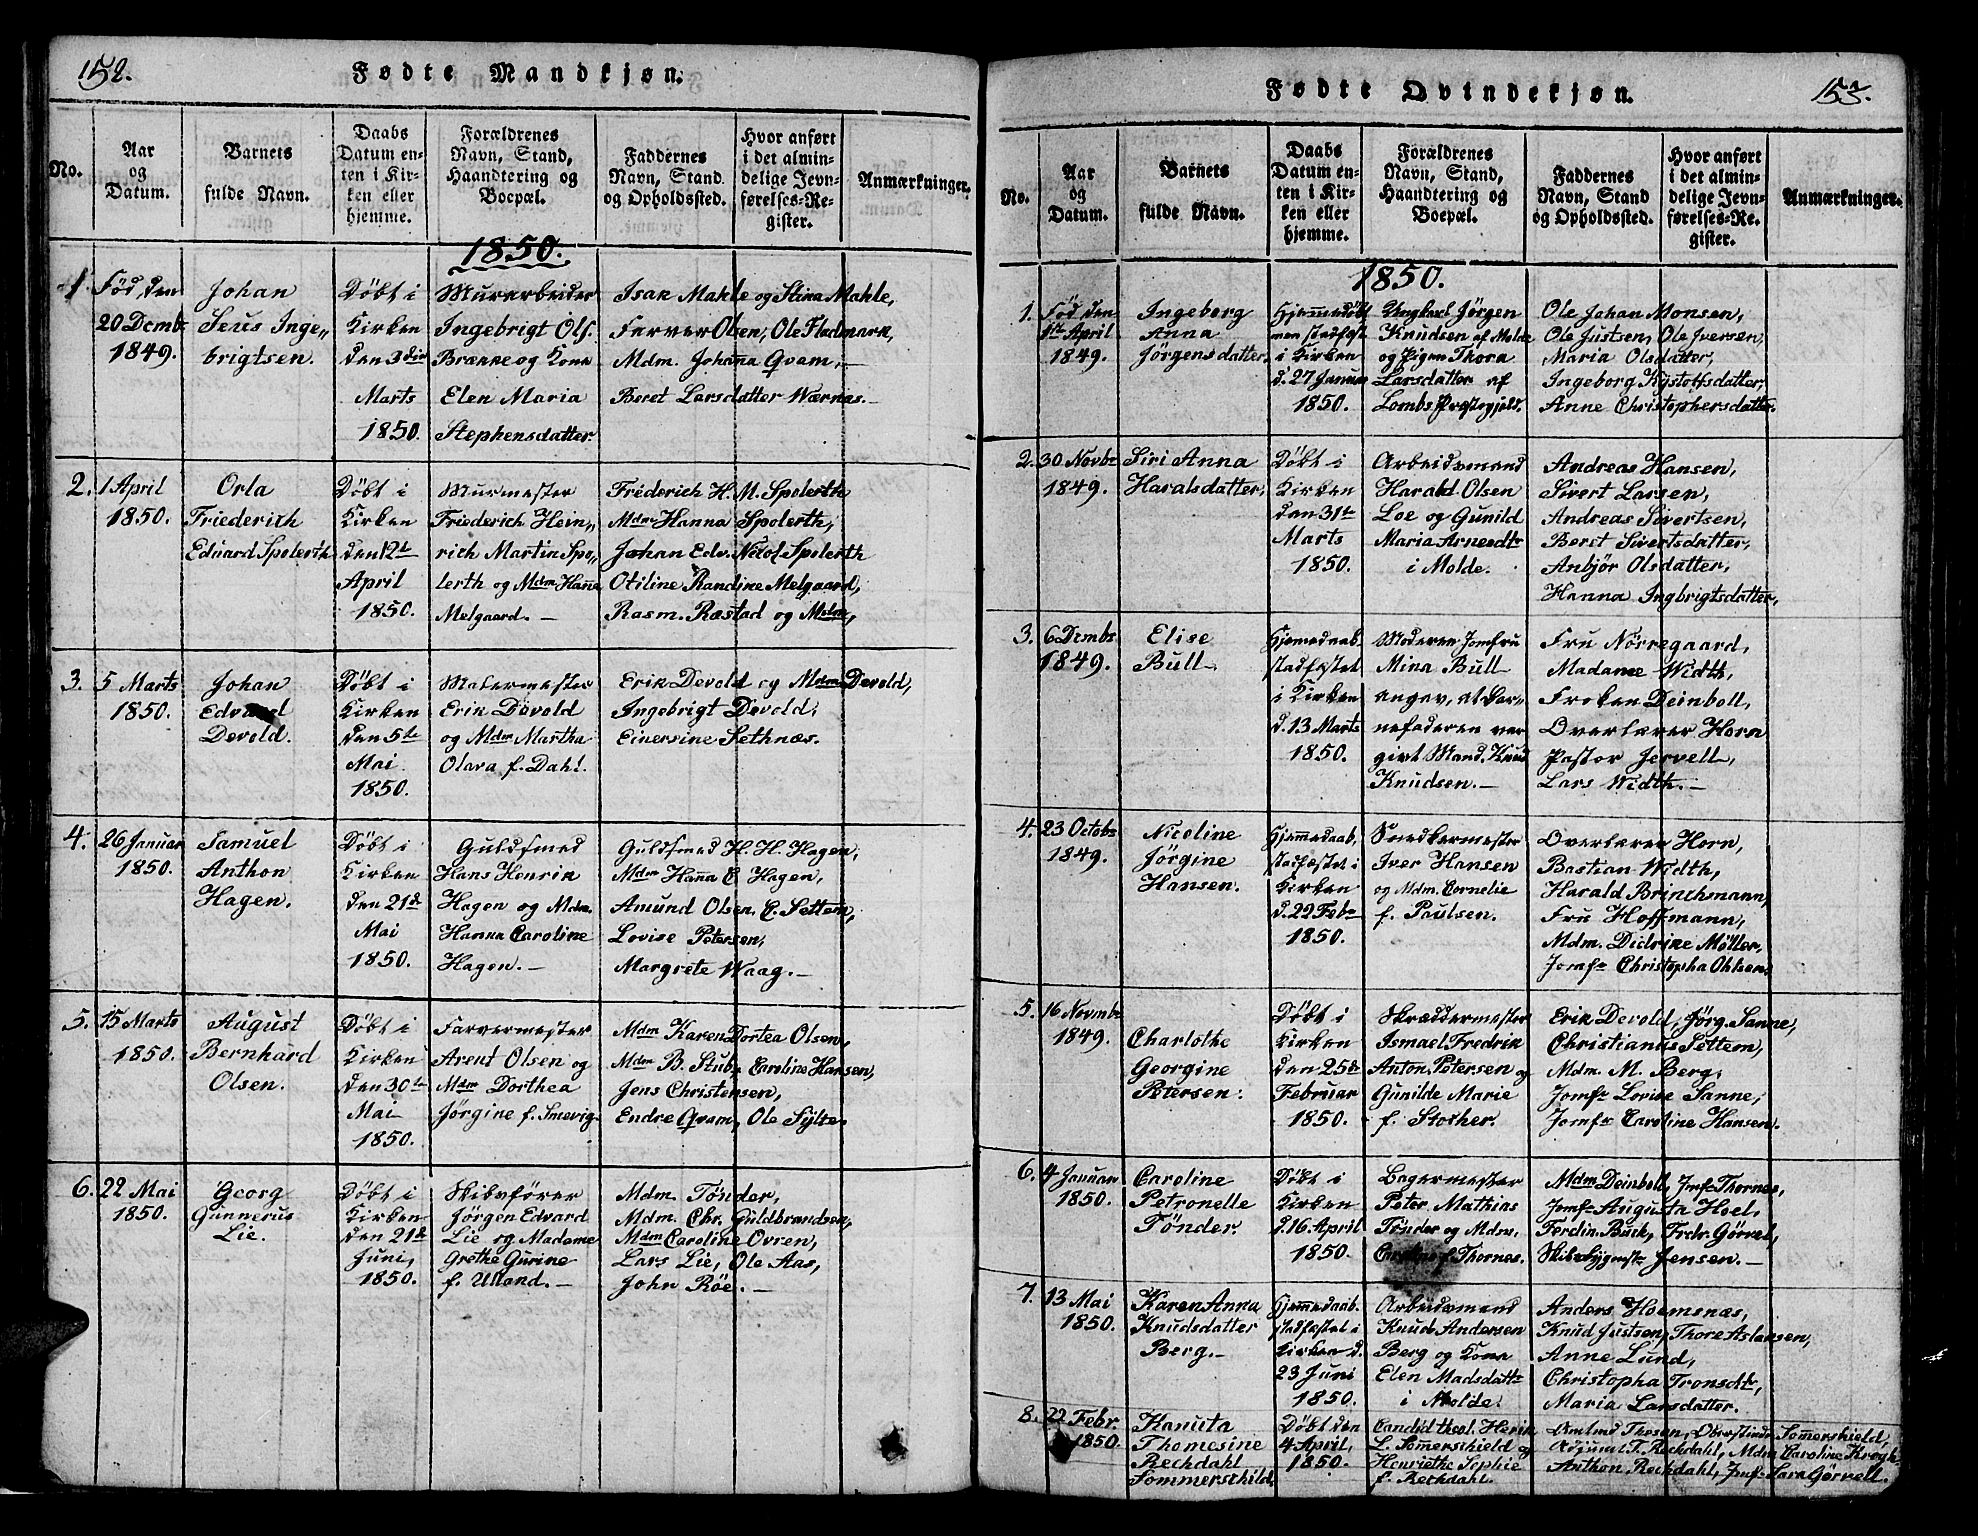 152.
Fødte Mandkjøn.
No.
Aar
og
Datum.
Barnets
fulde Navn.
Daabs
Datum en-
ten i Kir-
ken eller
hjemme.
Forældrenes
Navn, Stand,
Haandtering og
Boepæl.
Faddernes
Navn, Stand
og Opholdssted.
Hvor anført
i det almin-
delige Jevn-
førelses-Re-
gister.
Anmærkninger.
1850.
1
Fød, den
20 Dcmbr
1849.
Johan
Seus Inge„
brigtsen.
Døbt i
Kirken
den 3die
Marts
1850.
Murarbeider
Ingebrigt Ols.
Brække og Kone
Elen Maria
Stephensdatter.
Isak Mahle og Stina Mahle,
Farver Olsen, Ole Fladmark,
Mdm. Johanna Qvam,
Beret Larsdatter Wærnas.
2.
1 April
1850.
Orla
Friederich
Eduard Spolerth
Døbt i
Kirken
den 12te
April
1850.
Murmester
Friederich Hein„
rich Martin Spo„
lerth og Mdm Hanna
Melgaard. —
Frederich H. M. Spolerth
Mdm Hanna Spolerth,
Johan Edv. Nicol Spolerth
Otiline Randine Melgaard,
Rasm. Rastad og Mdme,
3.
5 Marts
1850.
Johan
Edvard
Devold.
Døbt i
Kirken
den 5te
Mai
1850.
Malermester
Erik Devold
og Mdm Martha
Olava f. Dahl.
Erik Devold og Mdm Devold,
Ingebrigt Devold,
Einersine Sethnæs.
4.
26 Januar
1850.
Samuel
Anthon
Hagen.
Døbt i
Kirken
den 21de
Mai
1850.
Guldsmed
Hans Henrik
Hagen og Mdm.
Hanna Caroline
Hagen. —
Guldsmed H. H. Hagen,
Mdm Hanna C Hagen,
Amund Olsen, C. Settem,
Lovise Petersen,
Margrete Waag. —
5.
15 Marts
1850.
August
Bernhard
Olsen.
Døbt i
Kirken
den 30te
Mai
1850.
Farvermester
Arent Olsen og
Mdm Dorthea
Jørgine f. Smevig
Mdm Karen Dortea Olsen,
Mdm B. Stub, Caroline Hansen,
Jens Christensen,
Endre Qvam, Ole Sylte.
6.
22 Mai
1850.
Georg
Gunnerus
Lie.
Døbt i
Kirken
den 21de
Juni,
1850.
Skibsfører
Jørgen Edvard
Lie og Madame
Grethe Gurine
f. Ulland. —
Mdm. Tønder,
Mdm. Chr. Guldbrandsen,
Mdm Caroline Ovren,
Lars Lie, Ole Aas,
John Røe. —
153.
Fødte Qvindekjøn.
No.
Aar
og
Datum.
Barnets
fulde Navn.
Daabs
Datum en-
ten i Kir-
ken eller
hjemme.
Forældrenes
Navn, Stand,
Haandtering og
Boepæl.
Faddernes
Navn, Stand
og Opholdssted.
Hvor anført
i det almin-
delige Jevn-
førelses-Re-
gister.
Anmærkninger.
1850.
1.
Fød den
1ste April
1849.
Ingeborg
Anna
Jørgensdatter
Hjemmedøbt
men stadfæst
i Kirken
d. 27 Januar
1850.
Ungkarl Jørgen
Knudsen af Molde
og Pigen Thora
Larsdatter af
Lombs Præstegjeld.
Ole Johan Monsen,
Ole Justsen, Ole Iversen,
Maria Olsdatter,
Ingeborg Kystofsdatter,
Anne Christophersdatter.
2.
30 Novbr
1849.
Siri Anna
Haralsdatter,
Døbt i
Kirken
den 31te
Marts
1850.
Arbeidsmand
Harald Olsen
Loe og Gunild
Maria Arnesdtr
i Molde.
Andreas Hansen,
Sivert Larsen,
Andreas Sivertsen,
Beret Sivertsdatter,
Anbjør Olsdatter,
Hanna Ingbrigtsdatter,
3.
6 Dcmbr
1849.
Elise
Bull
Hjemmedaab
stadfæstet
i Kirken
d. 13 Marts
1850.
Moderen Jomfru
Mina Bull
angav, at Bar-
nefaderen var
givt Mand, Knud
Knudsen. —
Fru Nörregaard,
Madame Width,
Frøken Deinboll,
Overlærer Horn
Pastor Jervell,
Lars Width. —
4.
23 Octobr
1849.
Nicoline
Jørgine
Hansen.
Hjemmedaab,
stadfæstet i
Kirken
d. 22 Febr
1850.
Snedkermester
Iver Hansen
og Mdm. Cornelie
f. Paulsen.
Overlærer Horn,
Bastian Width,
Harald Brinchmann,
Fru Hoffmann,
Mdm. Didrine Møller,
Jomfr Christopha Ohlsen,
5.
16 Novmbr
1849.
Charlothe
Georgine
Petersen.
Døbt i
Kirken
den 25de
Februar
1850.
Skræddermester
Ismael Fredrik
Anton Petersen og
Gunilde Marie
f. Stokher.
Erik Devold, Jörg. Sanne,
Christianus Settem,
Mdm. M. Berg,
Jomfr Lovise Sanne,
Jomfr Caroline Hansen.
6.
4 Januar
1850.
Caroline
Petronelle
Tønder.
Døbt i
Kirken
d. 16 April
1850.
Bagermester
Peter Mathias
Tønder og Mdm.
Caroline f. Thornes.
Mdm Deinboll, Jmfr Thornes,
Jomfr Augusta Hoel,
Ferdin. Buck, Fredr. Gørvel,
Skibsbygmestr Jensen. —
7.
13 Mai
1850.
Karen Anna
Knudsdatter
Berg. —
Hjemmedaab.
stadfæstet i
Kirken d.
23 Juni
1850.
Arbeidsmand
Knud Andersen
Berg og Kone
Elen Madsdattr
i Molde.
Anders Hoemsnæs,
Knud Justsen, Thore Aslaksen,
Anne Lund,
Christopha Tronsdtr,
Maria Larsdatter.
8.
22 Febr.
1850.
Kanuta
Thomesine
Rechdahl
Sommerschild,
Døbt den
4 April,
1850.
Candid theol. Henrik
L. Somerschield og
Henriethe Sophie
f. Rechdahl.
Amund Thesen, Oberstinde Somerschield,
Rechdahl, Mdm Caroline Krogh,
Anthon Rechdahl, Jmfr Sara Gørvell.